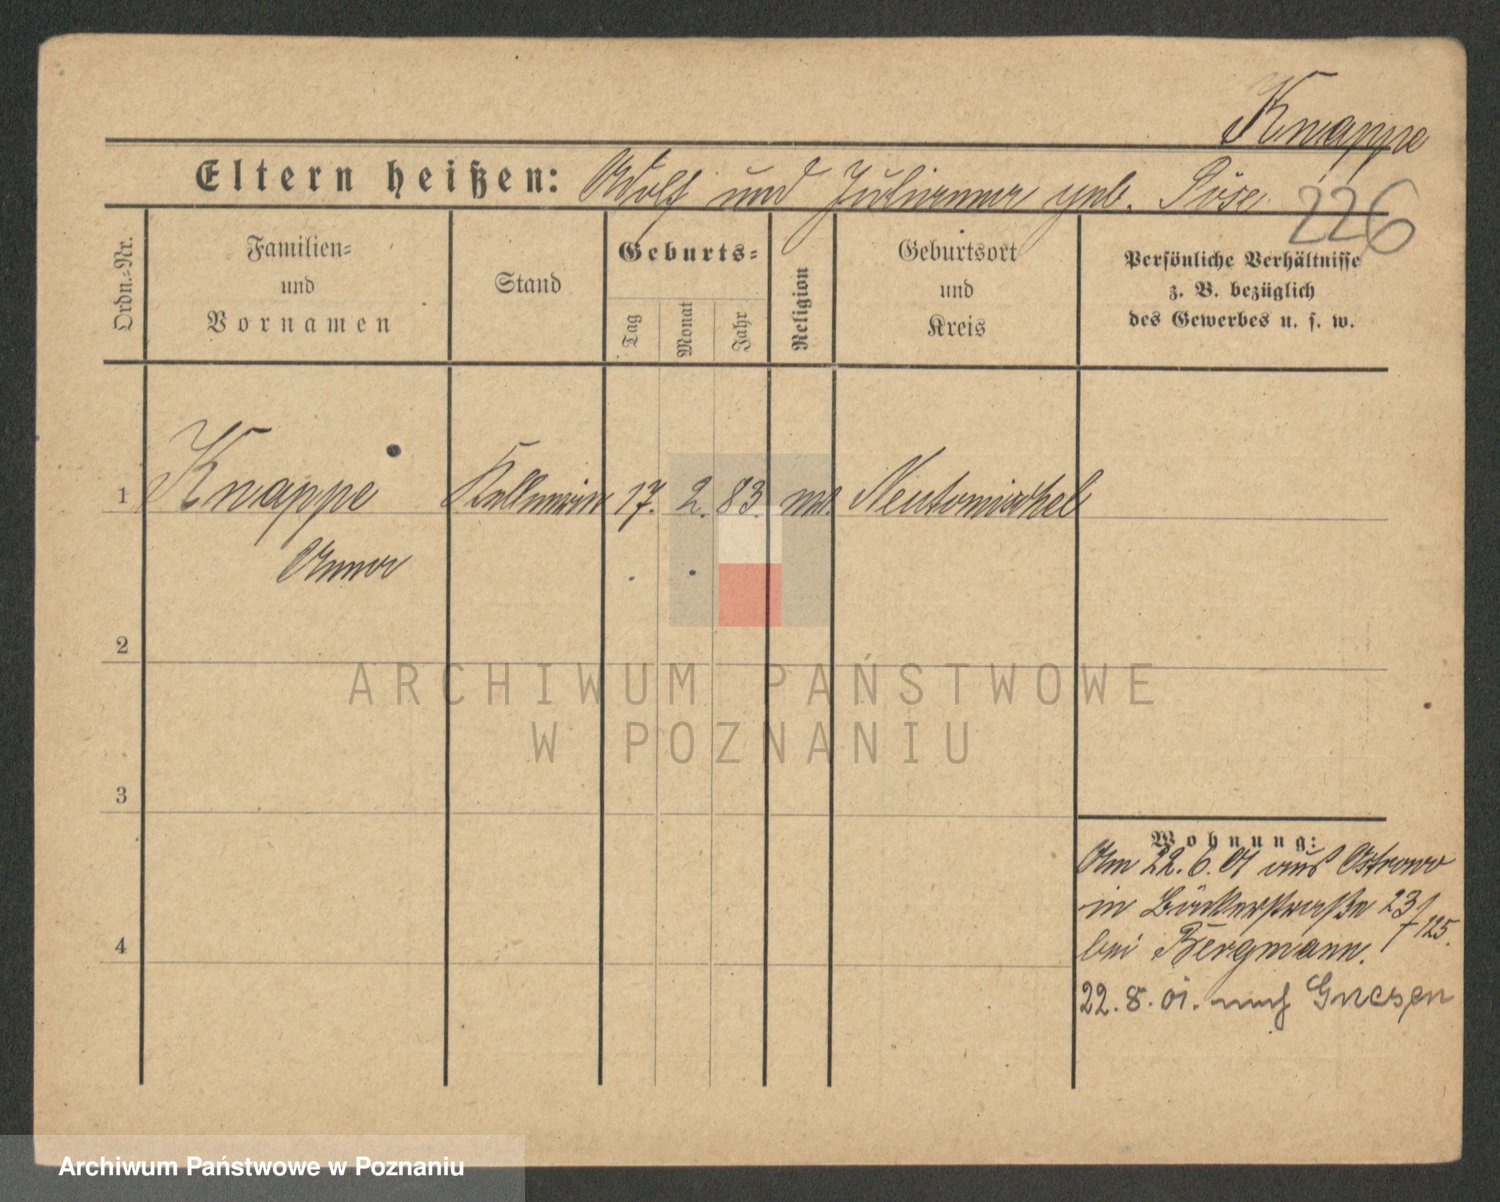 Knappe
Eltern heißen: Adolf und Julianna geb. Pose
226
Ordn.-Nr.
Familien-
und
Vornamen
Stand
Geburts-
Tag
Monat
Jahr
Religion
Geburtsort
und
Kreis
Persönliche Verhältnisse
z. B. bezüglich
des Gewerbes u. s. w.
1 Knappe Kellnerin 17. 2. 83. Neutomischel
Anna
2
3
4
Wohnung:
Am 22.6.01 aus Ostrowo
in Bäckerstraße 23/125.
bei Bergmann.
22.8.01. nach Gnesen
ARCHIWUM PAŃSTWOWE
W POZNANIU
Archiwum Państwowe w Poznaniu